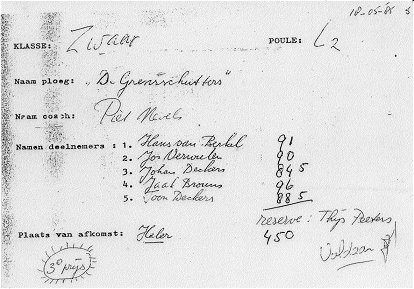 18-05-85
KLASSE: Zwaar POULE: L2
Naam ploeg: "De Grensschutters"
Naam coach: Piet Nevels
Namen deelnemers : 1. Hans van Berkel 91
2. Jos Verweelen 90
3. Johan Deckers 845
4. Jaak Brouns 96
5. Toon Deckers 885
reserve: Thijs Peeters
Plaats van afkomst: Haler 450
Voldaan
3e prijs